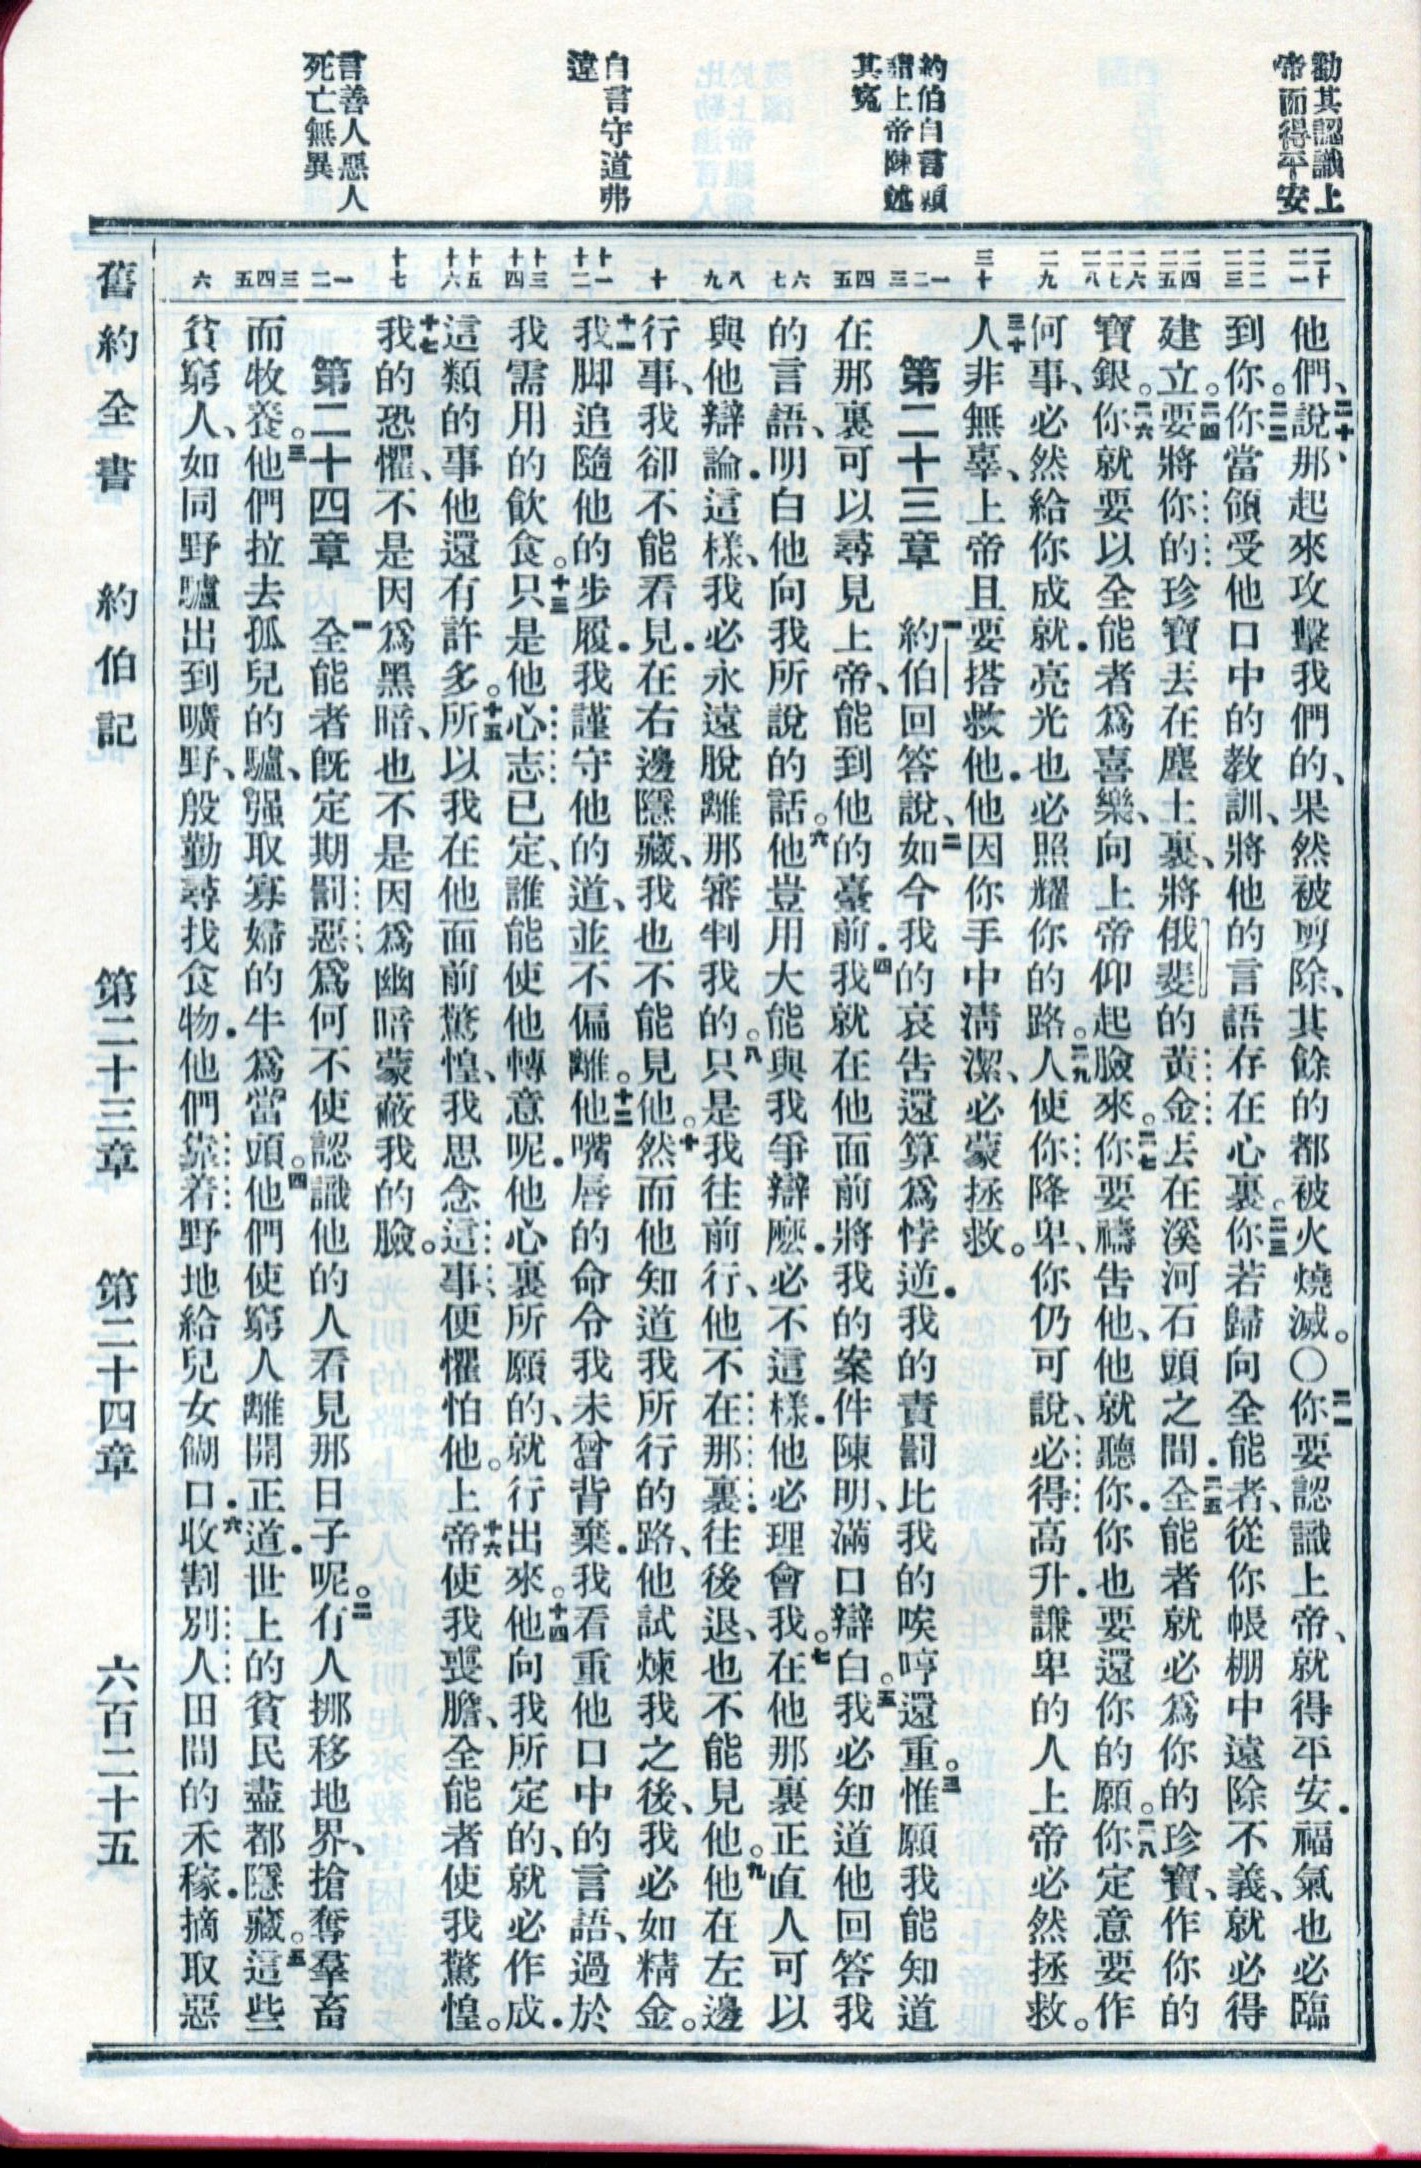 勸其認識上
帝而得平安
約伯自言願
詣上帝陳述
其寃
自言守道弗
違
言善人惡人
死亡無異
二十 二一 二二 二三 二四 二五 二六 二七 二八 二九 三十 一 二 三 四 五 六 七 八 九 十 十一 十二 十三 十四 十五 十六 十七 一 二 三 四 五 六
他們、二十說、那起來攻擊我們的、果然被剪除、其餘的都被火燒滅。〇二一你要認識上帝、就得平安．福氣也必臨
到你。二二你當領受他口中的教訓、將他的言語存在心裏。二三你若歸向全能者、從你帳棚中遠除不義、就必得
建立。二四要將你的珍寶丟在塵土裏、將俄斐的黃金丟在溪河石頭之間．二五全能者就必爲你的珍寶、作你的
寶銀。二六你就要以全能者爲喜樂、向上帝仰起臉來。二七你要禱告他、他就聽你．你也要還你的願。二八你定意要作
何事、必然給你成就．亮光也必照耀你的路。二九人使你降卑、你仍可說、必得高升．謙卑的人上帝必然拯救。
三十人非無辜、上帝且要搭救他．他因你手中清潔、必蒙拯救。
第二十三章　一約伯回答說、二如今我的哀告還算爲悖逆．我的責罰比我的唉哼還重。三惟願我能知道
在那裏可以尋見上帝、能到他的臺前．四我就在他面前將我的案件陳明、滿口辯白。五我必知道他回答我
的言語、明白他向我所說的話。六他豈用大能與我爭辯麽．必不這樣．他必理會我。七在他那裏正直人可以
與他辯論．這樣、我必永遠脫離那審判我的。八只是我往前行、他不在那裏．往後退、也不能見他。九他在左邊
行事、我卻不能看見．在右邊隱藏、我也不能見他。十然而他知道我所行的路、他試煉我之後、我必如精金。
十一我脚追隨他的步履．我謹守他的道、並不偏離。十二他嘴唇的命令我未曾背棄．我看重他口中的言語、過於
我需用的飲食。十三只是他心志已定、誰能使他轉意呢．他心裏所願的、就行出來。十四他向我所定的、就必作成．
這類的事他還有許多。十五所以我在他面前驚惶、我思念這事、便懼怕他。十六上帝使我喪膽、全能者使我驚惶。
十七我的恐懼、不是因爲黑暗、也不是因爲幽暗蒙蔽我的臉。
第二十四章　一全能者旣定期罰惡、爲何不使認識他的人看見那日子呢。二有人挪移地界、搶奪羣畜
而牧養。三他們拉去孤兒的驢、强取寡婦的牛爲當頭。四他們使窮人離開正道．世上的貧民盡都隱藏。五這些
貧窮人、如同野驢出到曠野、殷勤尋找食物．他們靠着野地給兒女餬口．六收割別人田間的禾稼．摘取惡
舊約全書　約伯記　第二十三章　第二十四章　六百二十五